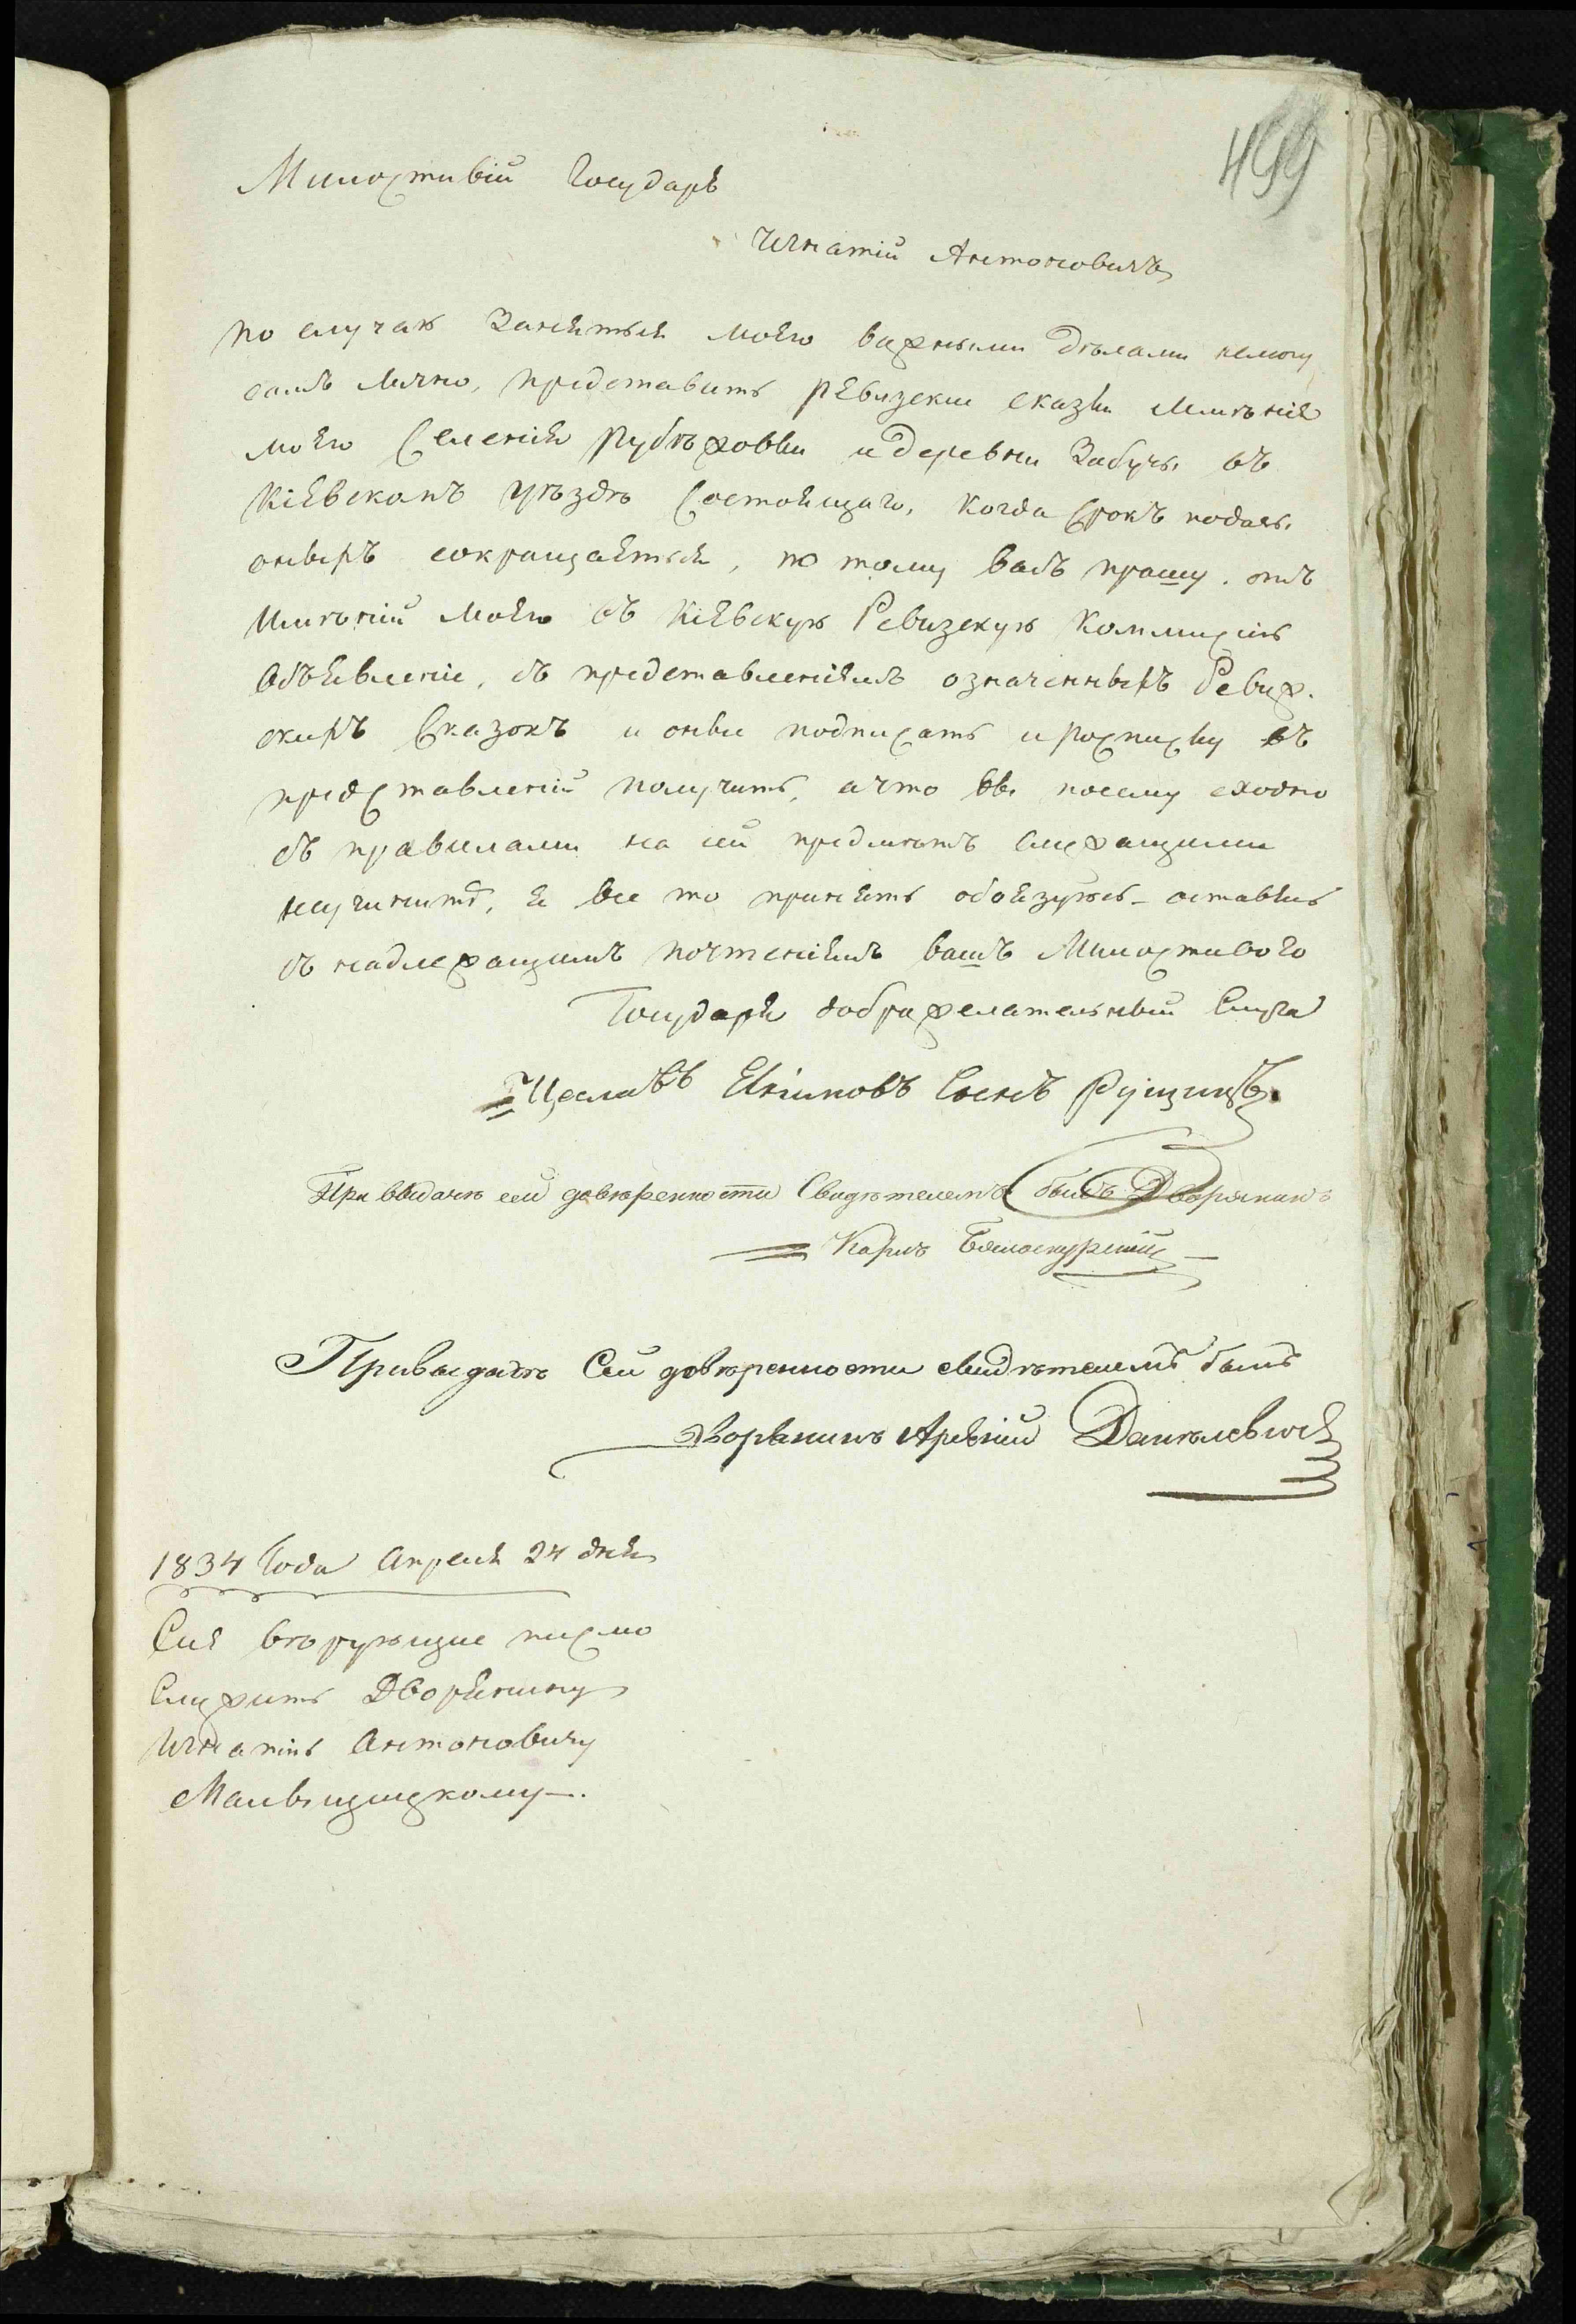 499
Милостивій Государь
Игнатій Антоновичъ
по случаю Занятія моего важными дѣлами немогу
самъ лично, представить ревизские сказки Имѣнія
моего Селенія Рубѣжовки идеревни Забучы въ
Кіевскомъ уѣздѣ Состоящаго, когда Срокъ подачы
оныхъ сокращается, по тому васъ прошу. отъ
Имѣній моего въ Кіевскую Ревизскую Коммисію
Объявленіе, съ представленіемъ означенныхъ Ревиз.
скихъ Сказокъ и оные подписать и росписку въ
представленій получить, ачто вы посему сходно
съ правилами на сей предметъ служащими
неучините, я все то принять обоязуюсь - оставаясь
съ надлежащимъ почтеніемъ вашъ Милостивого
Государя доброжелательный Слуга
Цеславъ Якимовъ Сынъ Рущицъ
При выдачѣ сей довѣренности Свидѣтелемъ былъ Дворянинъ
Карлъ Бялоскурскій
Привыдачѣ Сей довѣренности свидѣтелемъ былъ
дворянинъ Арсѣній Данѣлевичь
1834 Года Апреля 24 дня
Сия вѣрующие писмо
Служитъ Дворянину
Игнатію Антоновичу